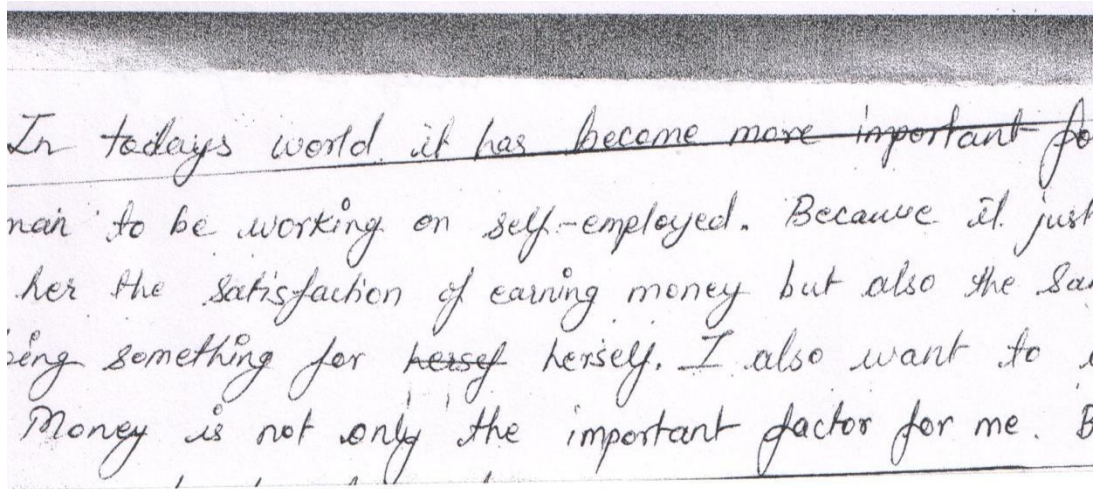 In todays world it has become more important fo
man to be working on self-employed. Because it just
her the satisfaction of earning money but also the Sa
oing something for hersef herself. I also want to
Money is not only the important factor for me. B